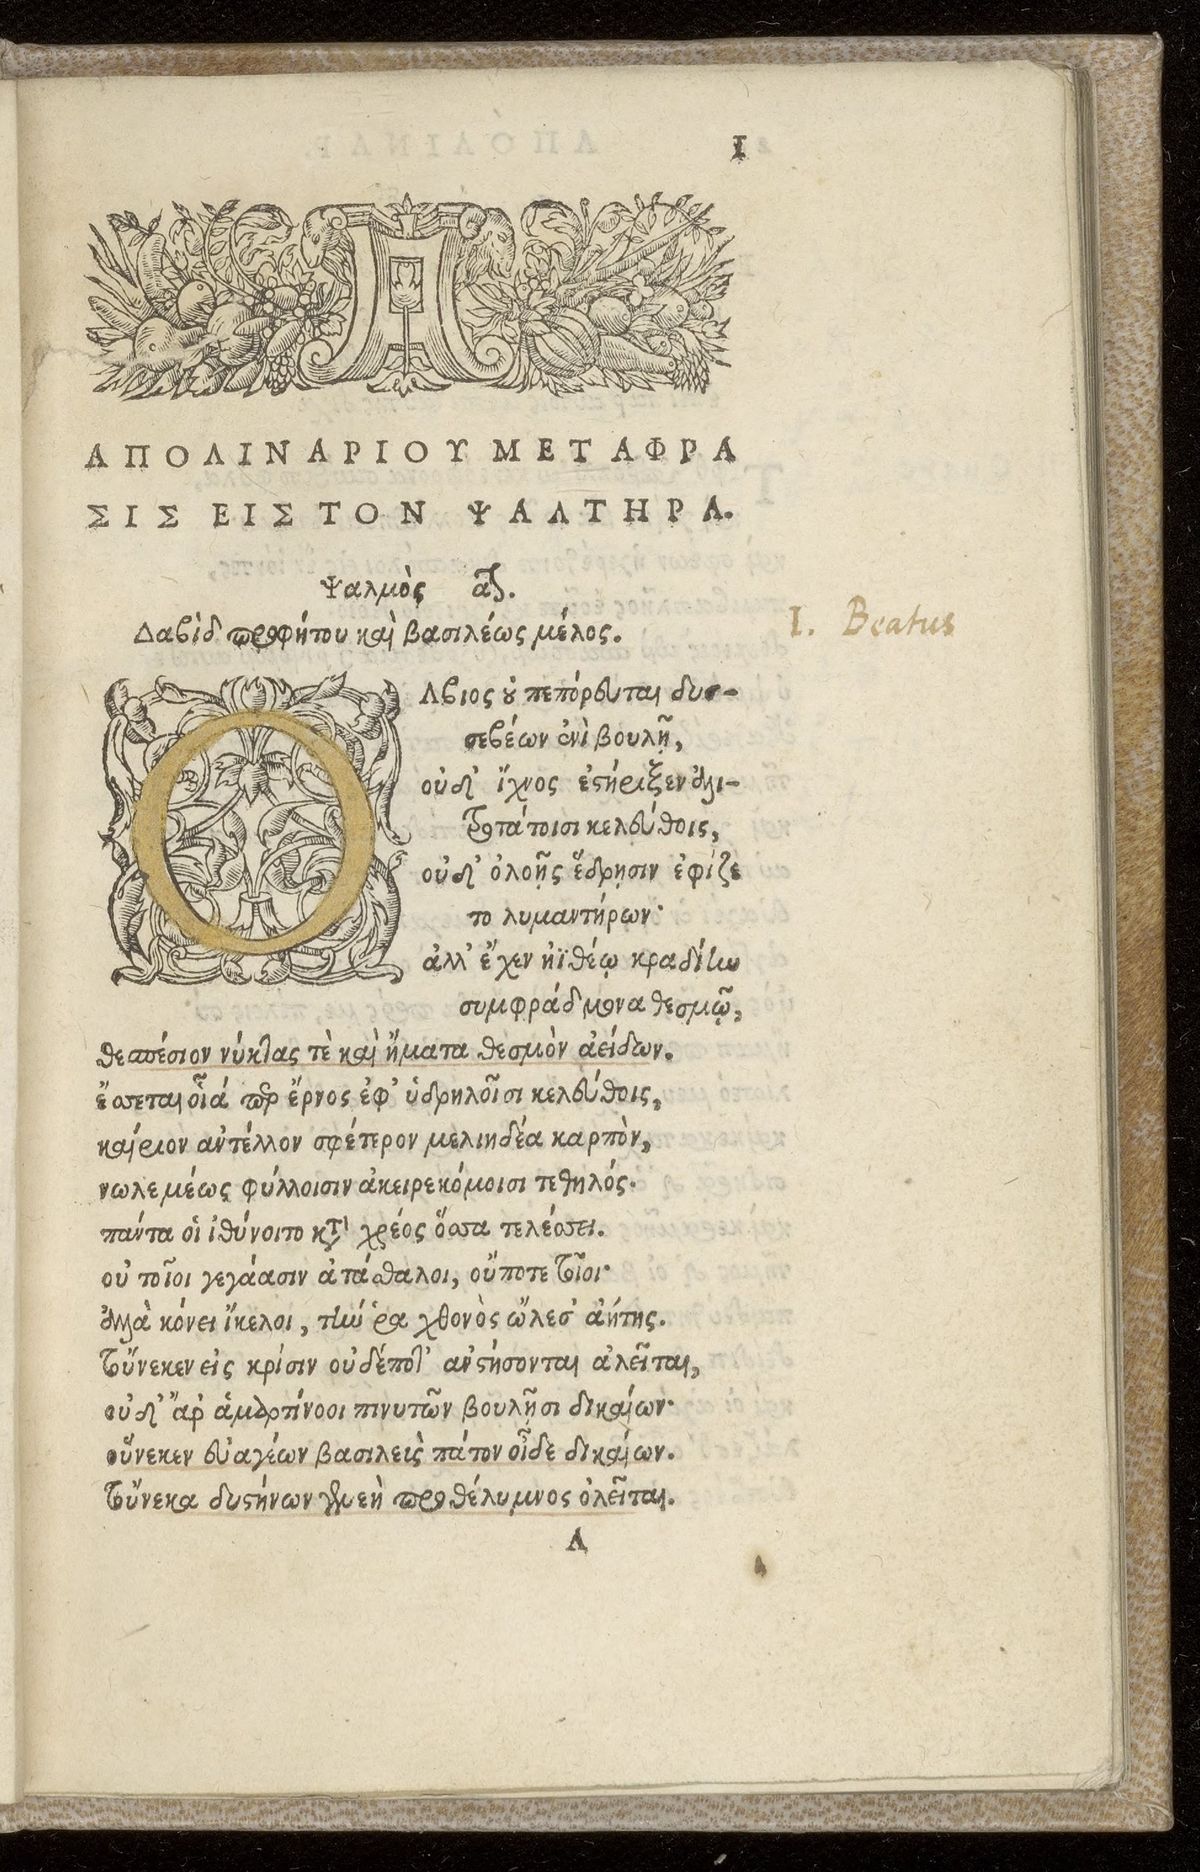 1
ΑΠΟΛΙΝΑΡΙΟΥ ΜΕΤΑΦΡΑ
ΣΙΣ ΕΙΣ ΤΟΝ ΨΑΛΤΗΡΑ.
Ψαλμὸς
Δαβὶδ προφήτου καὶ βασιλέως μέλος.
1. Beatus
ΟΛβιος ὃς πεπόρευται δυσ-
σεβέων ἐνὶ βουλῇ,
οὐδ' ἴχνος ἐστήριξεν ἀλι-
τροτάτοισι κελεύθοις,
οὐδ' ὀλοῇς ἕδρῃσιν ἐφίζε
το λυμαντήρων·
ἀλλ' ἔχεν ἠϊθέῳ κραδίην
συμφράδμονα θεσμῷ,
θεσπέσιον νύκτας τὲ καὶ ἤματα θεσμὸν ἀείδων.
ἔσσεται οἷά περ ἔρνος ἐφ' ὑδρηλοῖσι κελεύθοις,
καίριον ἀντέλλον σφέτερον μελιηδέα καρπὸν,
νωλεμέως φύλλοισιν ἀκειρεκόμοισι τεθηλός.
πάντα οἱ ἰθύνοιτο κατὰ χρέος ὅσσα τελέσσει.
οὐ τοῖοι γεγάασιν ἀτάσθαλοι, οὔποτε τοῖοι·
ἀλλὰ κόνει ἴκελοι, τὴν ῥα χθονὸς ὤλεσ' ἀήτης.
τοὔνεκεν εἰς κρίσιν οὐδέποτ' ἀνστήσονται ἀλεῖται,
οὐδ' ἂρ ἁμαρτίνοοι πινυτῶν βουλῇσι δικαίων·
οὕνεκεν εὐαγέων βασιλεὺς πάτον οἶδε δικαίων.
τοὔνεκα δυστήνων γενεὴ προθέλυμνος ὀλεῖται.
Α